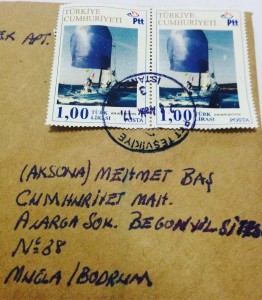 TÜRKİYE CUMHURİYETİ Ptt
TÜRKİYE CUMHURİYETİ Ptt
EK APT.
1,00 TÜRK LİRASI POSTA
1,00 TÜRK LİRASI POSTA
TEŞVİKİYE
(AKSONA) MEHMET BAŞ
CUMHURİYET MAH.
A.ARGA SOK. BEGONVİL SİTES
Nº: 38
MUGLA / BODRUM